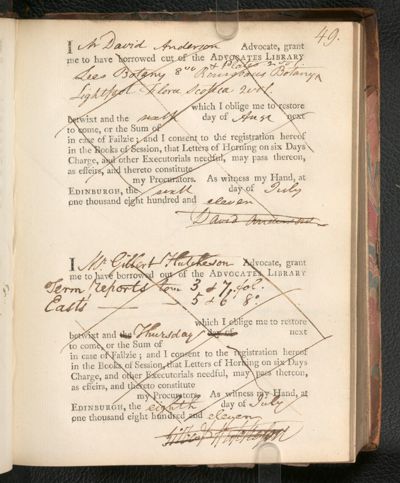 49.
I Mr David Anderson Advocate, grant
me to have borrowed out of the ADVOCATES LIBRARY
Lees Botany 8vo & Plates 2 vol
Lightfoot Flora Scotica 2 vol.
which I oblige me to restore
betwixt and the sixth day of Augt next
to come, or the Sum of
in case of Failzie; and I consent to the registration hereof
in the Books of Session, that Letters of Horning on six Days
Charge, and other Executorials needful, may pass thereon,
as effeirs, and thereto constitute
my Procurators. As witness my Hand, at
EDINBURGH, the sixth day of July
one thousand eight hundred and eleven
David Anderson
I Mr Gilbert Hutcheson Advocate, grant
me to have borrowed out of the ADVOCATES LIBRARY
Term Reports tom 3 & 7, fol.
East's — 5 & 6. 8o.
which I oblige me to restore
betwixt and the Thursday day of next
to come, or the Sum of
in case of Failzie; and I consent to the registration hereof
in the Books of Session, that Letters of Horning on six Days
Charge, and other Executorials needful, may pass thereon,
as effeirs, and thereto constitute
my Procurators. As witness my Hand, at
EDINBURGH, the eighth day of July
one thousand eight hundred and eleven
Gilbert Hutcheson